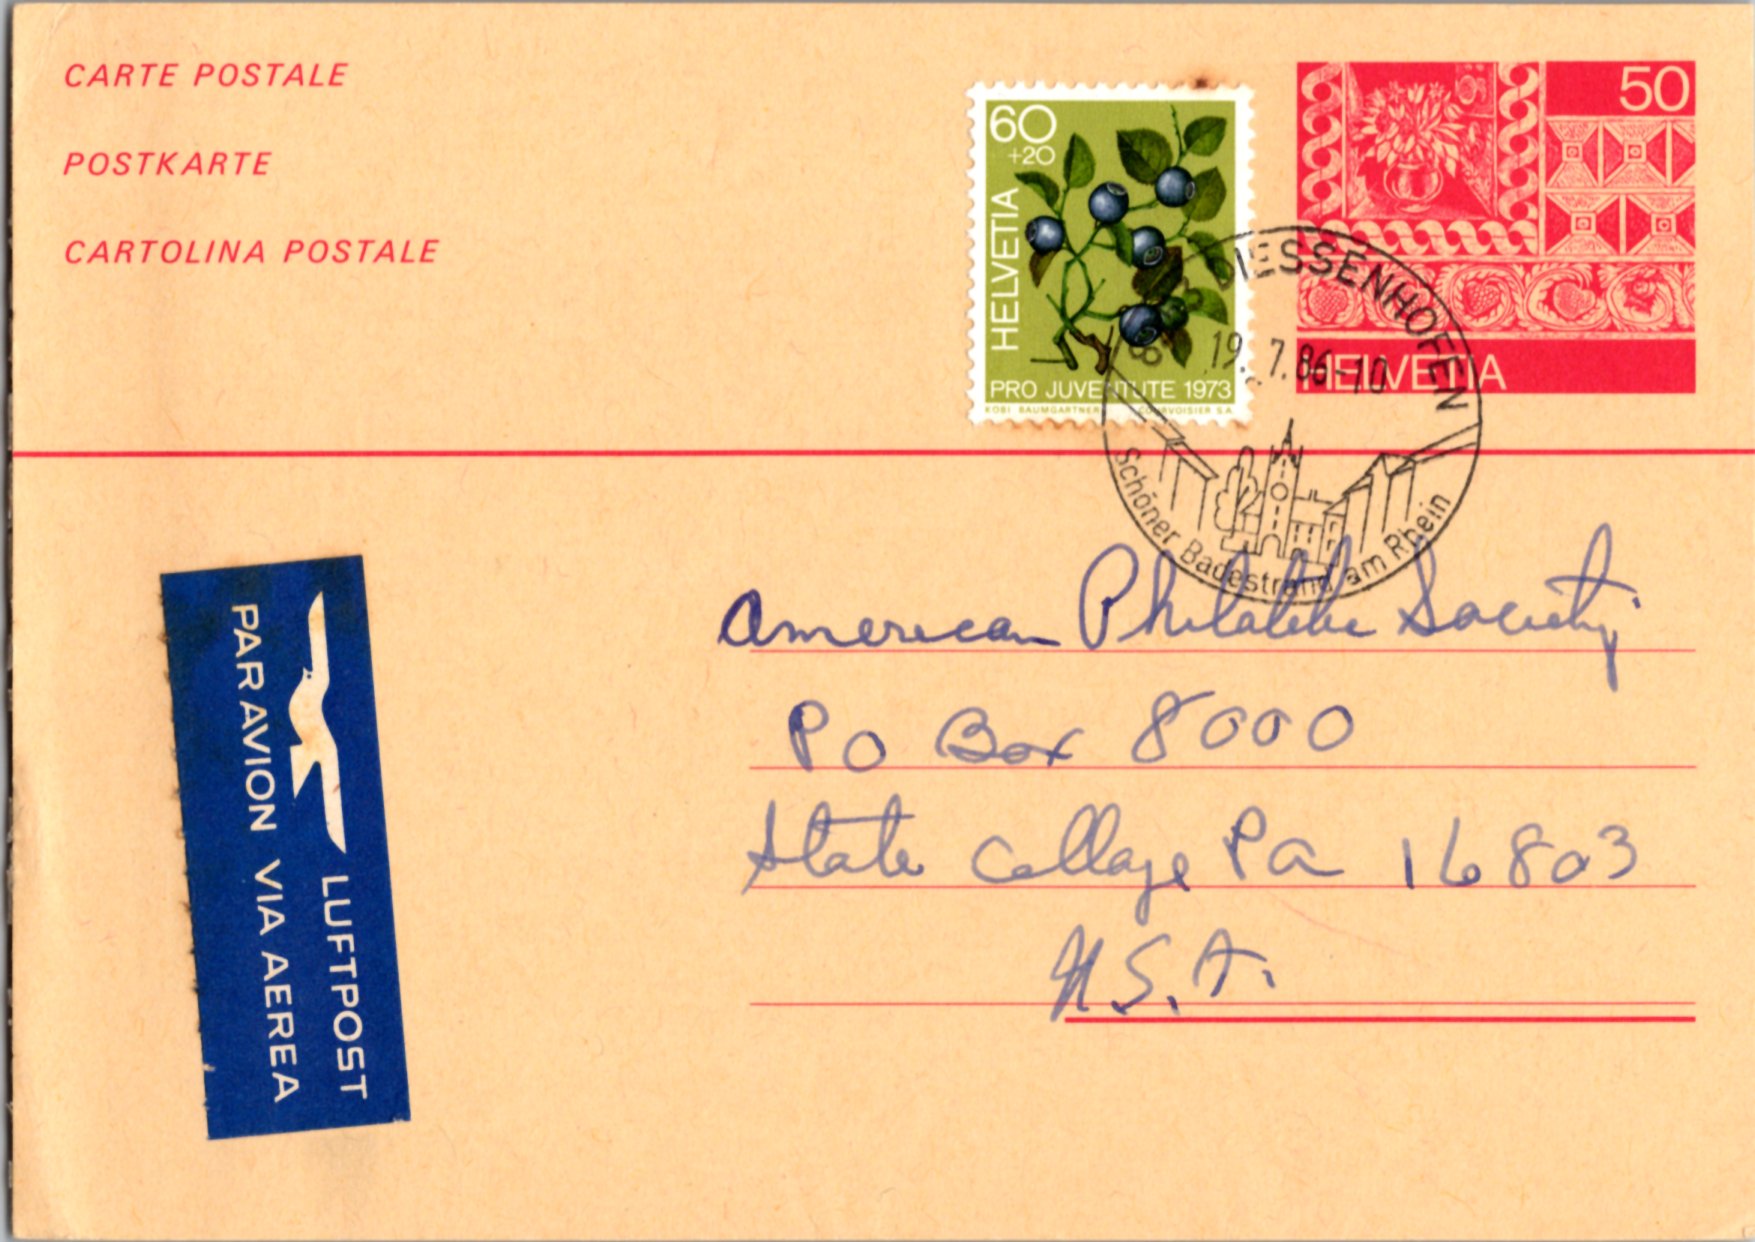 CARTE POSTALE
POSTKARTE
CARTOLINA POSTALE
60
+20
HELVETIA
PRO JUVENTUTE 1973
KOBI BAUMGARTNER COURVOISIER S.A
50
HELVETIA
DIESSENHOFEN
19.7.86-10
Schöner Badestrand am Rhein
American Philatelic Society
PO Box 8000
State College Pa 16803
U.S.A.
LUFTPOST
PAR AVION VIA AEREA